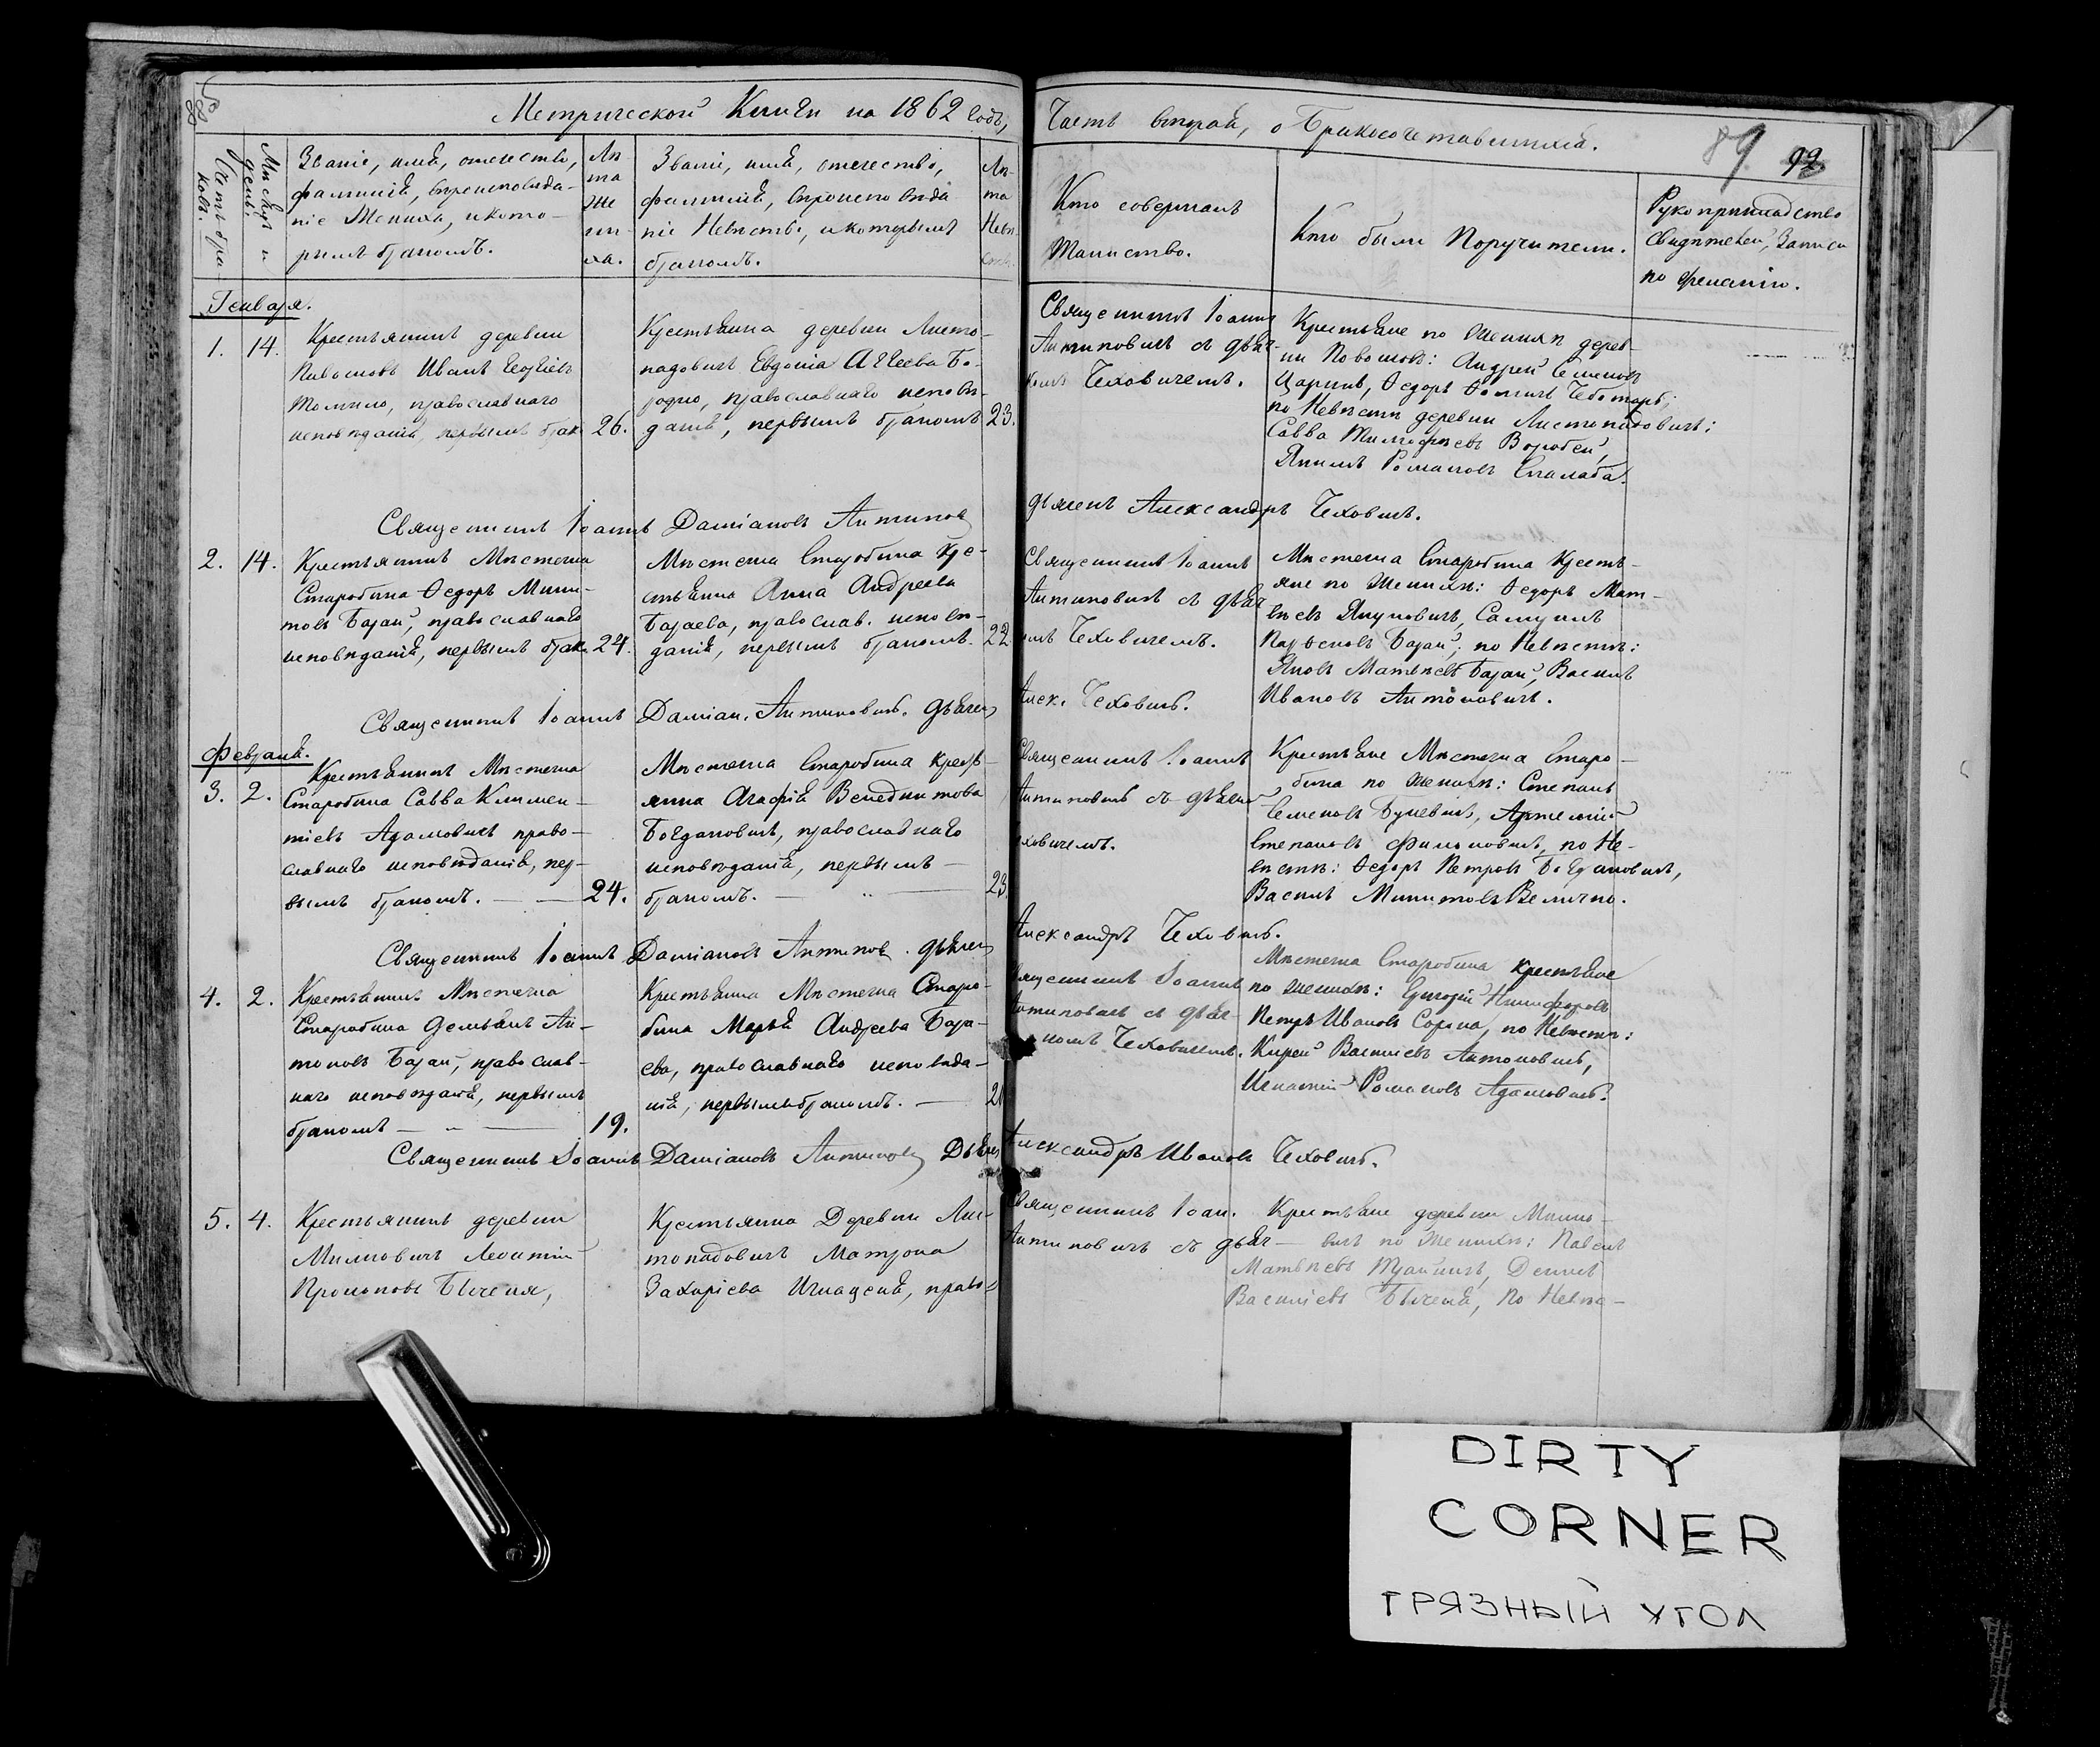 Метрической Книги на 1862 годъ,
Часть вторая, о Бракосочетавшихся.
89
92
Счетъ браковъ.
Мѣсяцъ и день.
Званіе, имя, отечество,
фамилія, вѣроисповѣда-
ніе Жениха, и кото-
рымъ бракомъ.
Лѣ-
та
Же-
ни-
ха.
Званіе, имя, отечество,
фамилія, вѣроисповѣда
ніе Невѣсты, и которымъ
бракомъ.
Лѣ-
та
Невѣ
Кто совершалъ
Таинство.
Кто были Поручители.
Рукоприкладство
Свидѣтелей, Записи
по желанію.
Генваря.
1. 14.
Крестьянинъ деревни
Иванъ
православнаго
исповѣданія, первымъ брак. 26.
Крестьянка деревни Листо-
падовичъ Евдокія Агеева Бо-
православнаго исповѣ-
данія, первымъ бракомъ 23.
Священникъ Іоаннъ
Антиповичъ съ дьяч-
комъ Чеховичемъ.
Крестьяне по Женихѣ дерев-
ни Андрей Семеновъ
Ѳедоръ Чеботарь;
по Невѣстѣ деревни Листопадовичъ:
Савва Тимофеевъ Воробей,
Якимъ Романовъ
Священникъ Іоаннъ Даміановъ Антипов
дьячекъ Александръ Чеховичъ.
2. 14.
Крестьянинъ Мѣстечка
Старобина Ѳедоръ Мики-
товъ Бараи, православнаго
исповѣданія, первымъ брак. 24.
Мѣстечка Старобина Кре-
стьянка Анна Андреева
Бараева, православ. исповѣ-
данія, первымъ бракомъ. 22
Священникъ Іоаннъ
Антиповичъ съ дьяч
омъ Чеховичемъ.
Мѣстечка Старобина Кресть-
яне по Женихѣ: Ѳедоръ Мат-
вѣевъ Януковичъ, Самуилъ
Бараи; по Невѣстѣ:
Яковъ Матвѣевъ Бараи, Василь
Ивановъ Антоновичъ.
Священникъ Іоаннъ Даміан. Антиповичъ. Дьячек
Алек. Чеховичъ.
Февраля.
3. 2.
Крестьянинъ Мѣстечка
Старобина Савва Климен-
тіевъ Адамовичъ право-
славнаго исповѣданія, пер-
вымъ бракомъ. — — 24.
Мѣстечка Старобина Крест-
янка Агафія Венедиктова
Богдановичъ, православнаго
исповѣданія, первымъ —
бракомъ. — " — 23.
Священникъ Іоаннъ
Антиповичъ съ дьячк
еховичемъ.
Крестьяне Мѣстечка Старо-
бина по Женихѣ: Степанъ
Семеновъ Артемій
Степановъ Филиповичъ, по Не-
вѣстѣ: Ѳедоръ Петровъ Богдановичъ,
Василь Микитовъ Величко.
Священникъ Іоаннъ Даміановъ Антипов. дьячек
Александръ Чеховичъ.
4. 2.
Крестьянинъ Мѣстечка
Старобина Демьянъ Ан-
тоновъ Бараи, православ-
наго исповѣданія, первымъ
бракомъ — " — 19.
Крестьянка Мѣстечка Старо-
бина Марья Андреева Бара-
ева, православнаго исповѣда-
нія, первымъ бракомъ. — 21
вященникъ Іоаннъ
Антиповичъ съ дьяч-
комъ Чеховичемъ.
Мѣстечка Старобина Крестьяне
по Женихѣ: Григорій Никифоровъ
Петръ Ивановъ Сорока, по Невѣстѣ:
Кирей Васильевъ Антоновичъ,
Игнатій Романовъ Адамовичъ.
Священникъ Іоаннъ Даміановъ Антипович Дьячек
Александръ Ивановъ Чеховичъ.
5. 4.
Крестьянинъ деревни
Милковичъ Леонтій
Прокоповъ Бычекя,
Крестьянка Деревни Лис-
топадовичъ Матрона
Захаріева Игнацекя, право=
Священникъ Іоан.
Антиповичъ съ дьяч—
Крестьяне деревни Милко-
вичъ по Женихѣ: Павелъ
Матвѣевъ Денисъ
Василіевъ Бычекя, По Невѣс-
DIRTY
CORNER
ГРЯЗНЫЙ УГОЛ